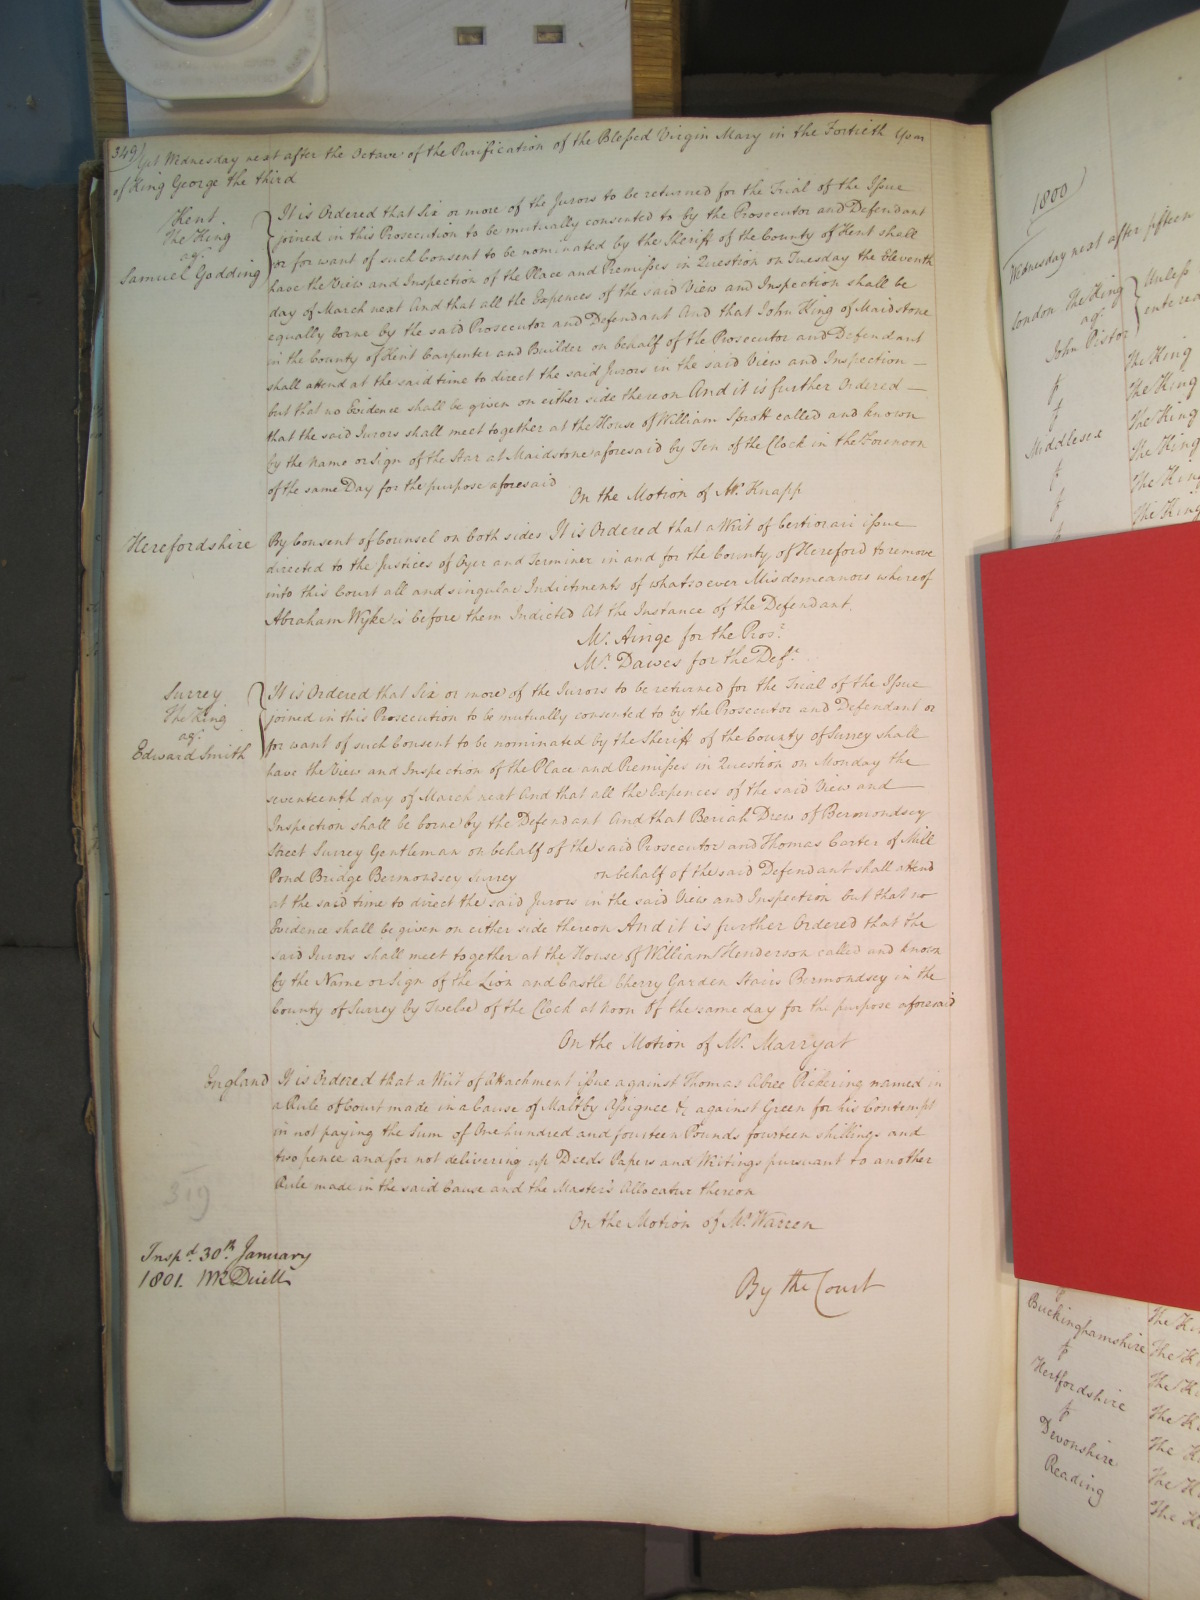 349
Yet Wednesday next after the Octave of the Purification of the Blessed Virgin Mary in the Fortieth Year
of King George the third
Kent.
The King
agt
Samuel Godding
It is Ordered that Six or more of the Jurors to be returned for the Trial of the Issue
joined in this Prosecution to be mutually consented to by the Prosecutor and Defendant
or for want of such Consent to be nominated by the Sheriff of the County of Kent shall
have the View and Inspection of the Place and Premisses in Question on Tuesday the Eleventh
day of March next And that all the Expences of the said View and Inspection shall be
equally borne by the said Prosecutor and Defendant And that John King of Maidstone
in the County of Kent Carpenter and Builder on behalf of the Prosecutor and Defendant
shall attend at the said time to direct the said Jurors in the said View and Inspection
but that no Evidence shall be given on either side thereon And it is further Ordered
that the said Jurors shall meet together at the House of William Sprott called and known
by the Name or Sign of the Star at Maidstone aforesaid by Ten of the Clock in the Forenoon
of the same Day for the purpose aforesaid
On the Motion of Mr. Knapp
Herefordshire
By Consent of Counsel on both sides It is Ordered that a Writ of Certiorari issue
directed to the Justices of Oyer and Terminer in and for the County of Hereford to remove
into this Court all and singular Indictments of whatsoever Misdemeanors whereof
Abraham Wyke is before them Indicted At the Instance of the Defendant.
Mr. Ainge for the Pros.r
Mr. Dawes for the Def.t
Surrey
The King
agt
Edward Smith
It is Ordered that Six or more of the Jurors to be returned for the Trial of the Issue
joined in this Prosecution to be mutually consented to by the Prosecutor and Defendant or
for want of such Consent to be nominated by the Sheriff of the County of Surrey shall
have the View and Inspection of the Place and Premisses in Question on Monday the
seventeenth day of March next And that all the Expences of the said View and
Inspection shall be borne by the Defendant And that Beriah Drew of Bermondsey
Street Surrey Gentleman on behalf of the said Prosecutor and Thomas Carter of Mill
Pond Bridge Bermondsey Surrey on behalf of the said Defendant shall attend
at the said time to direct the said Jurors in the said View and Inspection but that no
Evidence shall be given on either side thereon And it is further Ordered that the
said Jurors shall meet together at the House of William Henderson called and known
by the Name or Sign of the Lion and Castle Cherry Garden Stairs Bermondsey in the
County of Surrey by Twelve of the Clock at Noon of the same day for the purpose aforesaid
On the Motion of Mr. Marryat
England
It is Ordered that a Writ of Attachment issue against Thomas Abree Pickering named in
a Rule of Court made in a Cause of Maltby Assignee &c against Green for his Contempt
in not paying the Sum of One hundred and fourteen Pounds fourteen shillings and
two pence and for not delivering up Deeds Papers and Writings pursuant to another
Rule made in the said Cause and the Master's Allocatur thereon
On the Motion of Mr. Warren
319
Inspd. 30th. January
1801.
By the Court
1800
Wednesday next after fifteen
London The King
agt
John Pistor
Unless
entered
The King
The King
The King
Middlesex
The King
The King
The King
Buckinghamshire
Hertfordshire
Devonshire
Reading
The Ki
The K
The K
The K
The K
The K
The K